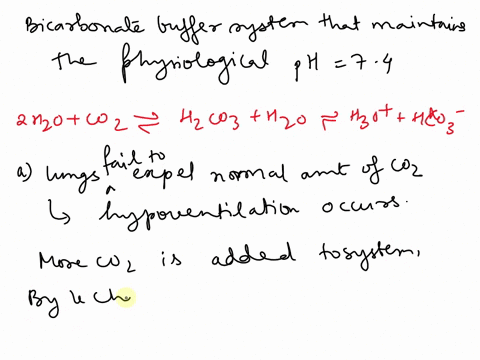 Bicarbonate buffer system that maintains
the physiological pH = 7.4
2H2O + CO2 ⇌ H2CO3 + H2O ⇌ H3O+ + HCO3-
a) lungs fail to ^ expel normal amt of CO2
↳ hypoventilation occurs.
More CO2 is added to system,
By le Cha